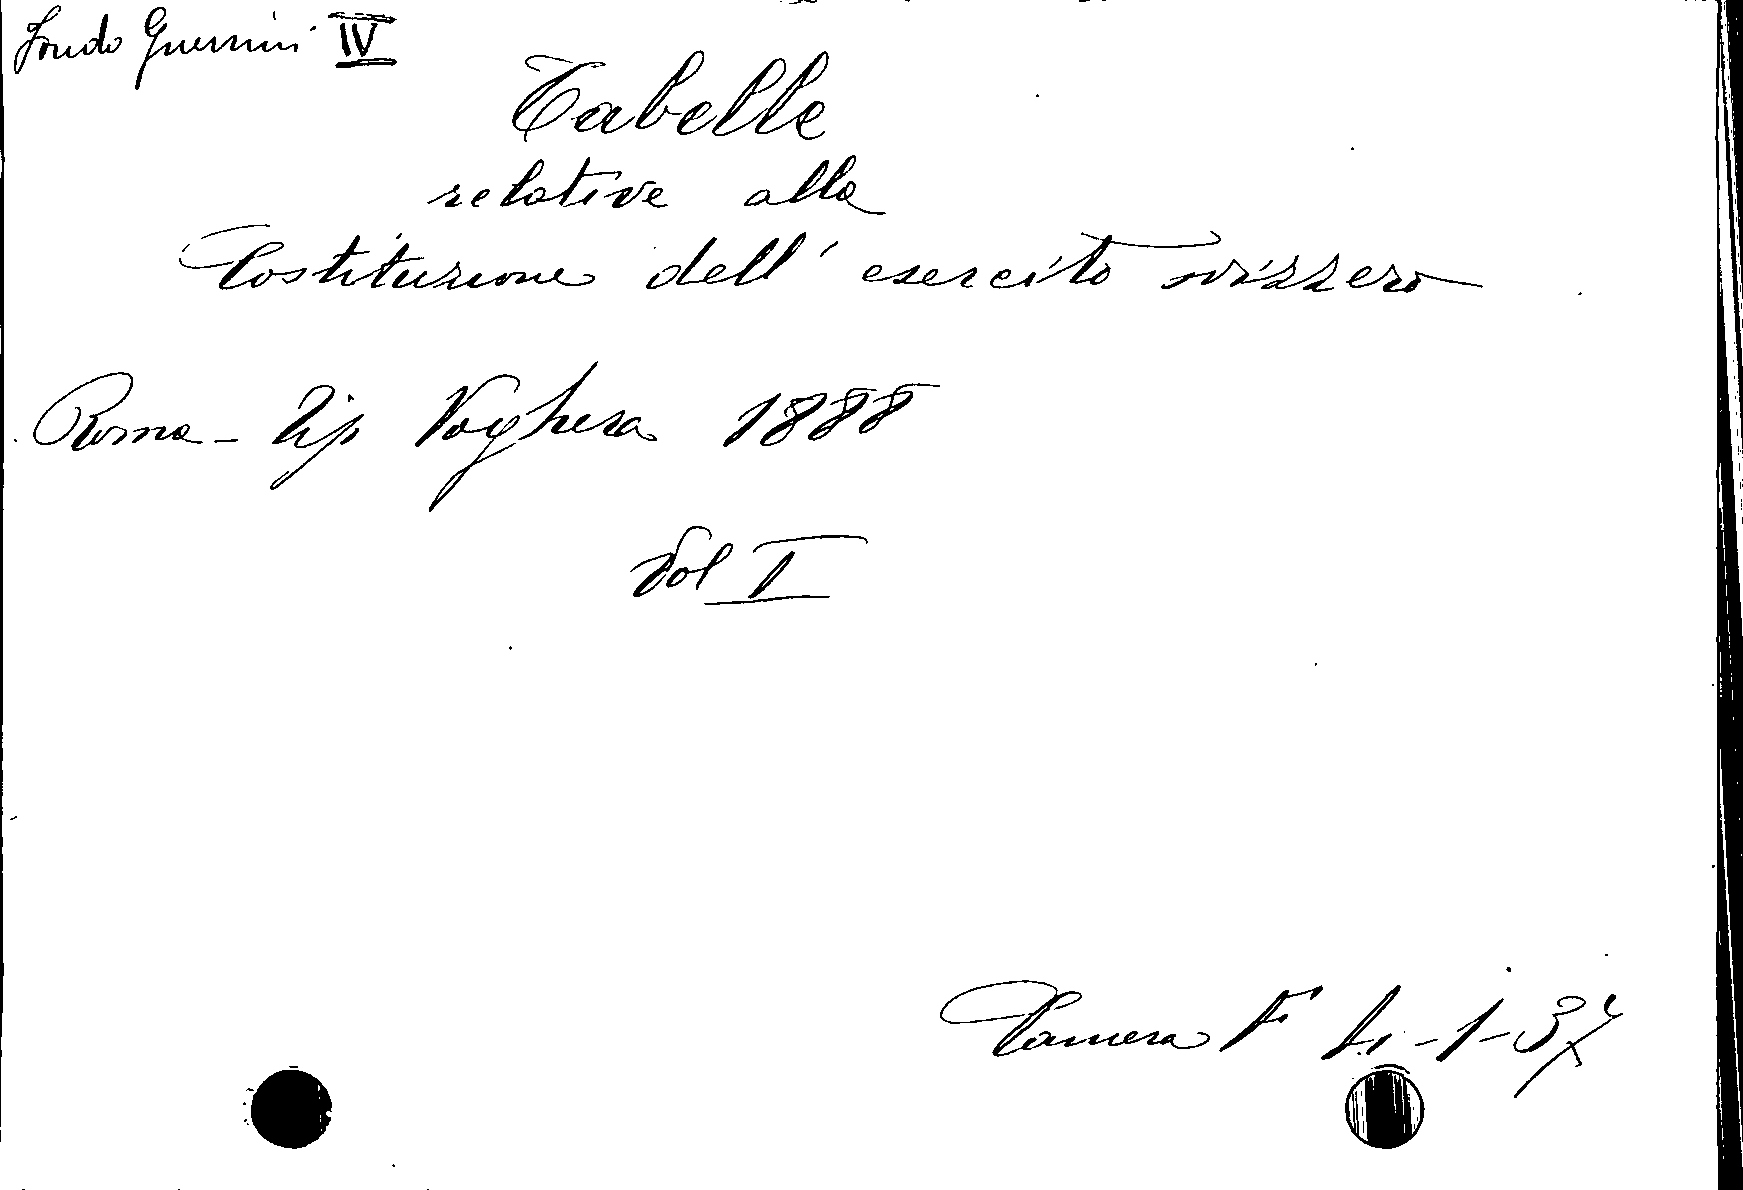 Fondo Guerrini IV
Tabelle
relative alla
Costituzione dell' esercito svizzero
Roma - Tip Voghera 1888
Vol I
Camera F